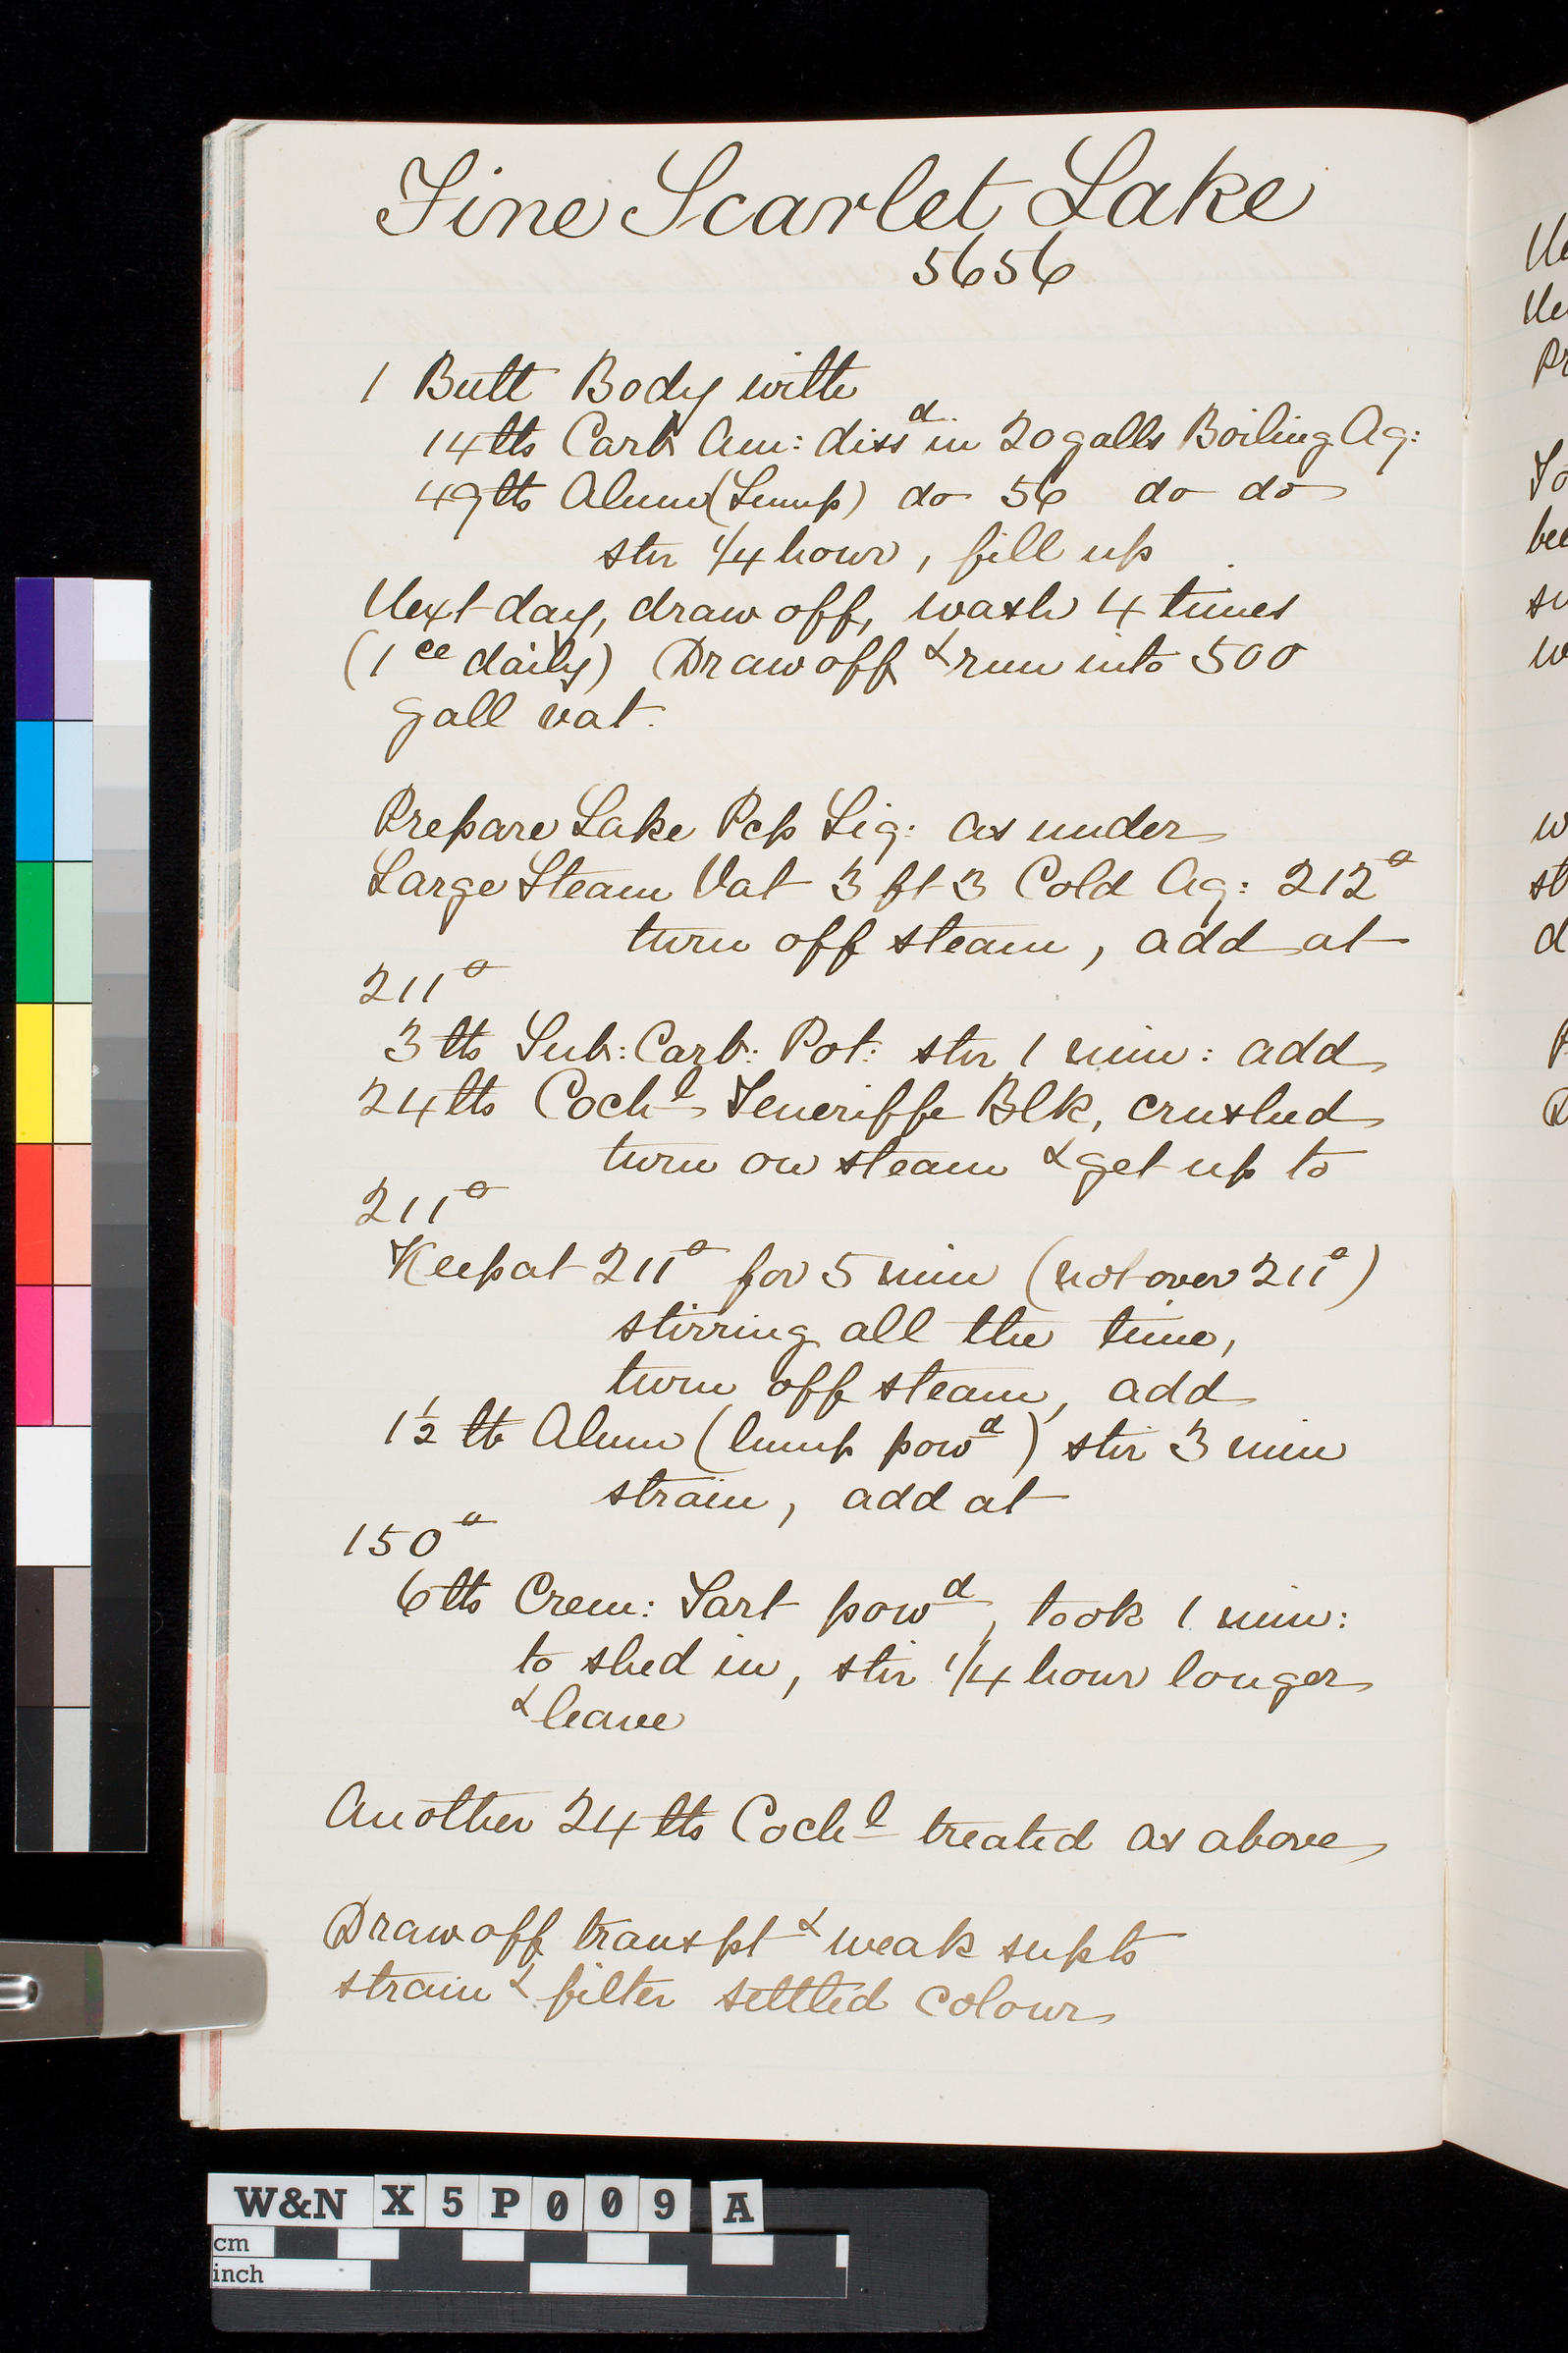 Fine Scarlet Lake
5656
1 Butt Body with
14 lbs Carb Am: dissd in 20 galls Boiling Aq:
49 lbs Alum (Lump) do 56 do do
stir 1/4 hour, fill up
Next day, draw off, wash 4 times
(1ce daily) Draw off & run into 500
gall vat.
Prepare Lake Pcp Liq: as under
Large Steam Vat 3 ft 3 Cold Aq: 212°
turn off steam, add at
211°
3 lbs Sub: Carb: Pot: stir 1 min: add
24 lbs Cochl Teneriffe Blk, crushed
turn on steam & get up to
211°
Keep at 211° for 5 min (not over 211°)
stirring all the time,
turn off steam, add
1½ lb Alum (lump powd) stir 3 min
strain, add at
150°
6 lbs Crem: Tart powd, took 1 min:
to shed in, stir 1/4 hour longer
& leave
Another 24 lbs Cochl treated as above
Draw off transpt & weak supts
strain & filter settled colour
W&N X5P009 A
cm
inch